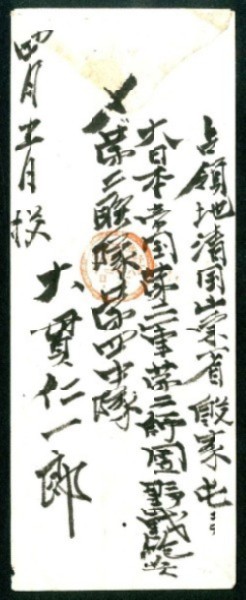 占領地清国山東省殷家屯ニテ
大日本帝国第二軍第二師団野戦砲兵
第二聯隊第四中隊
大貫仁一郎
四月十五日投